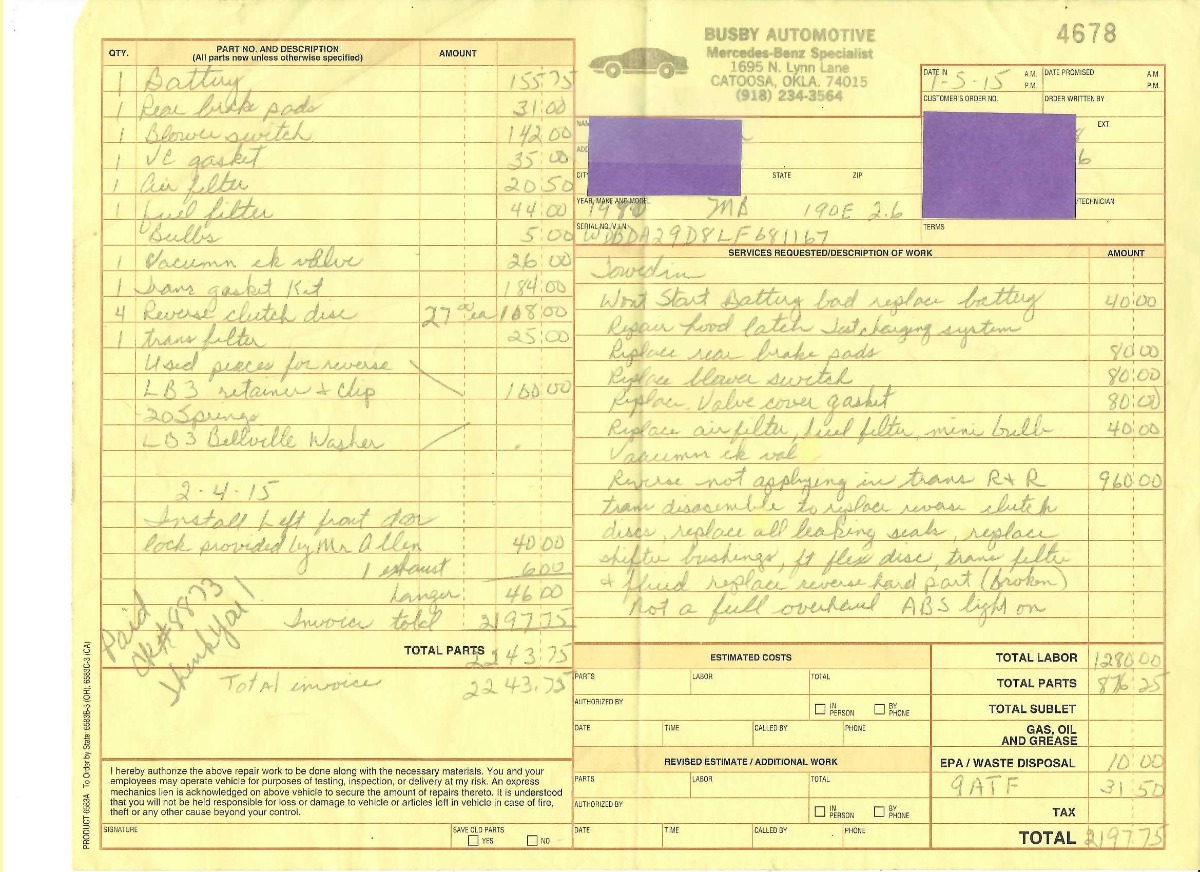 BUSBY AUTOMOTIVE
Mercedes-Benz Specialist
1695 N. Lynn Lane
CATOOSA, OKLA. 74015
(918) 234-3564
4678
QTY. PART NO. AND DESCRIPTION AMOUNT
(All parts new unless otherwise specified)
1 Battery 155.75
1 Rear brake pads 31 00
1 Blower switch 142 00
1 VC gasket 35 00
1 Air filter 20 50
1 fuel filter 44 00
Bulbs 5 00
1 Vacumn ck valve 26 00
1 Trans gasket Kit 184 00
4 Reverse clutch disc 27 00 ea 108 00
1 trans filter 25 00
Used peaces for reverse
LB3 retainer + Clip 100 00
20 Springs
LB3 Bellville Washer
2-4-15
Install Left front door
lock provided by Mr Allen 40 00
1 exhaust 6 00
hanger 46 00
Invoice total 2197 75
TOTAL PARTS 2243.75
Total invoice 2243.75
Paid
CK# 8873
Thank Ya'll
I hereby authorize the above repair work to be done along with the necessary materials. You and your
employees may operate vehicle for purposes of testing, inspection, or delivery at my risk. An express
mechanics lien is acknowledged on above vehicle to secure the amount of repairs thereto. It is understood
that you will not be held responsible for loss or damage to vehicle or articles left in vehicle in case of fire,
theft or any other cause beyond your control.
SIGNATURE SAVE OLD PARTS
YES NO
PRODUCT 6583A To Order by State: 6583B-3 (OH), 6583C-3 (CA)
DATE IN 1-5-15 A.M. P.M. DATE PROMISED A.M. P.M.
CUSTOMER'S ORDER NO. ORDER WRITTEN BY
EXT.
6
CITY STATE ZIP
YEAR, MAKE AND MODEL /TECHNICIAN
1990 MB 190E 2.6
SERIAL NO./V.I.N. TERMS
WDBDA29D8LF681167
SERVICES REQUESTED/DESCRIPTION OF WORK AMOUNT
Towed in
Wont Start Battery bad replace battery 40 00
Repair hood latch Test charging system
Replace rear brake pads 80 00
Replace blower switch 80 00
Replace Valve cover gasket 80 00
Replace air filter, fuel filter, mini bulb 40 00
Vaacumn ck val
Reverse not applying in trans R+R 960 00
trans disasemble to replace reverse clutch
discs, replace all leaking seals, replace
shifter bushings, ft flex disc, trans filter
+ fluid replace reverse hard part (broken)
Not a full overhaul ABS light on
ESTIMATED COSTS
PARTS LABOR TOTAL
AUTHORIZED BY IN PERSON BY PHONE
DATE TIME CALLED BY PHONE
REVISED ESTIMATE / ADDITIONAL WORK
PARTS LABOR TOTAL
AUTHORIZED BY IN PERSON BY PHONE
DATE TIME CALLED BY PHONE
TOTAL LABOR 1280 00
TOTAL PARTS 876 25
TOTAL SUBLET
GAS, OIL
AND GREASE
EPA / WASTE DISPOSAL 10 00
9 ATF 31 50
TAX
TOTAL 2197 75